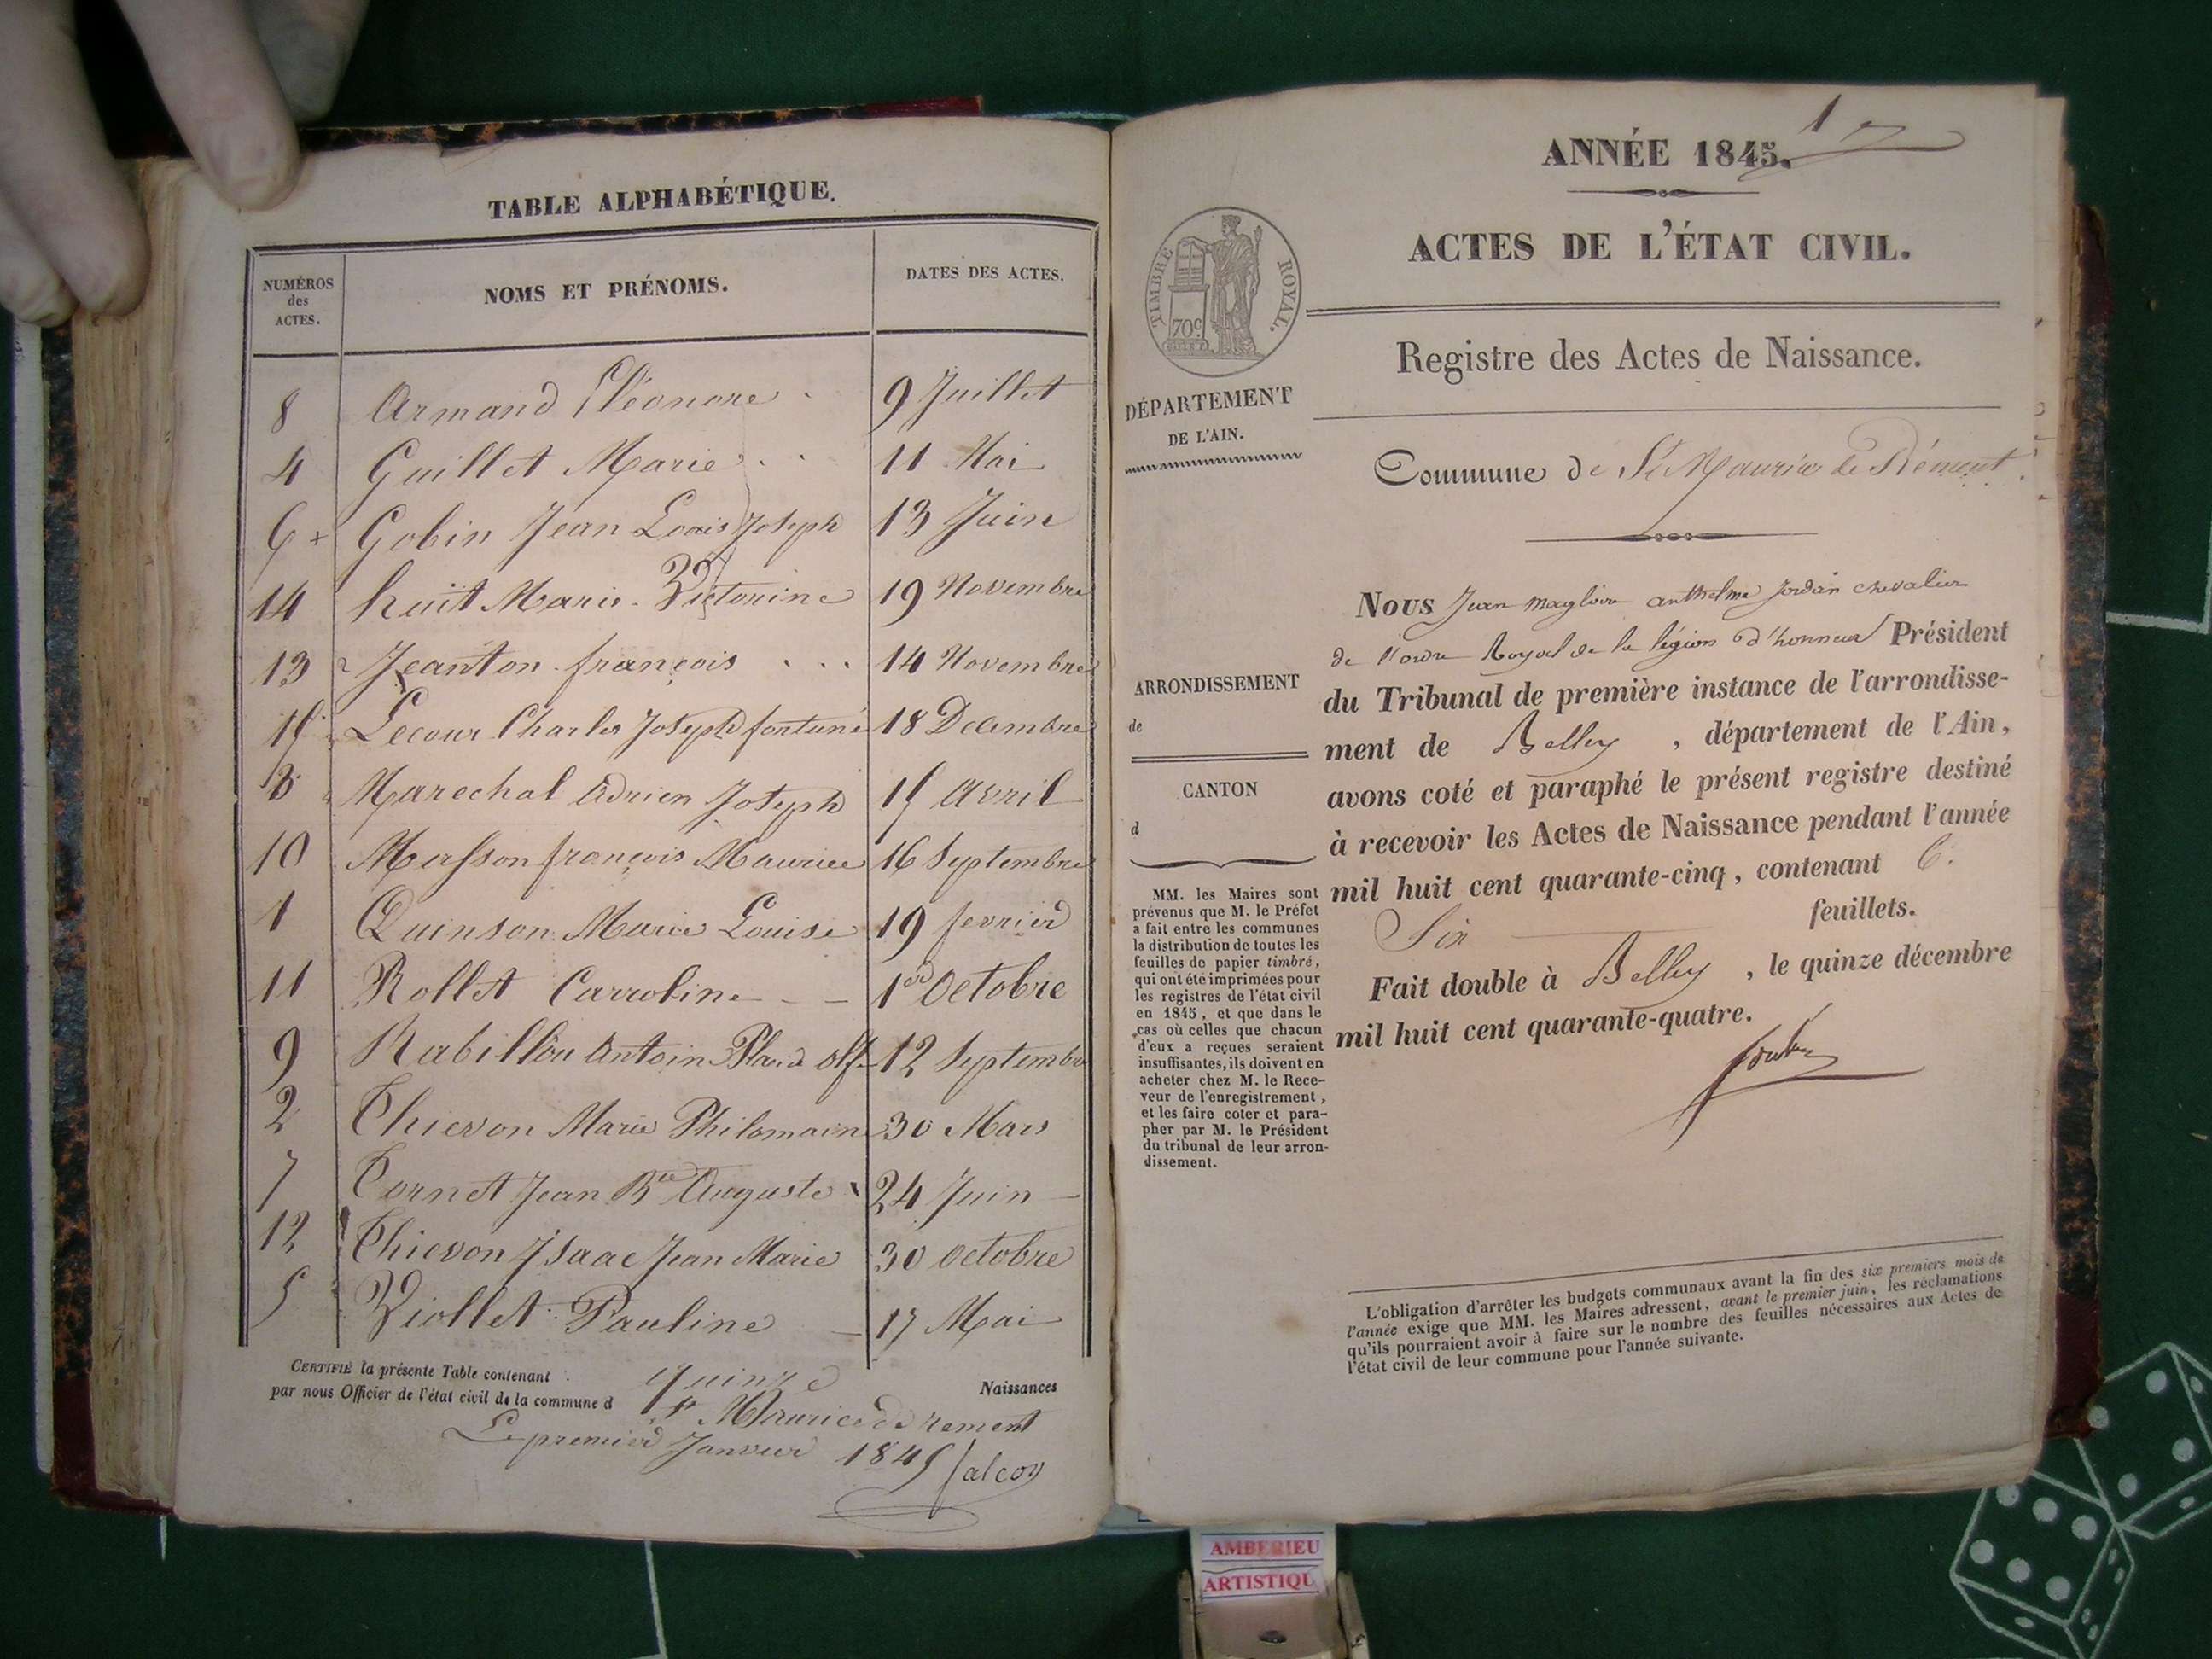 TABLE ALPHABÉTIQUE.
NUMÉROS
des
ACTES.
NOMS ET PRÉNOMS.
DATES DES ACTES.
8 Armand Eléonore 9 Juillet
4 Guillet Marie 11 Mai
6 + Gobin Jean Louis Joseph 13 Juin
14 huit Marie Victorine 19 Novembre
13 Jeanton françois 14 Novembre
15 Lecour Charles Joseph fortuné 18 Decembre
3 Marechal Adrien Joseph 15 Avril
10 Masson françois Maurice 16 Septembre
1 Quinson Marie Louise 19 fevrier
11 Rollet Carroline 1er Octobre
9 Rabillou Antoin 12 Septembre
2 Thievon Marie Philomain 30 Mars
7 Tornet Jean Bte Auguste 24 Juin
12 Thievon Isaac Jean Marie 30 Octobre
5 Viollet Pauline 17 Mai
CERTIFIÉ la présente Table contenant quinze Naissances
par nous Officier de l'état civil de la commune d St Maurice de rement
Le premier Janvier 1845
falcoz
ANNÉE 1845.
1
ACTES DE L'ÉTAT CIVIL.
TIMBRE ROYAL.
70c
Registre des Actes de Naissance.
DÉPARTEMENT
DE L'AIN.
Commune de St Maurice de Rémont.
Nous Jean magloire anthelme Jordan chevalier
de l'ordre Royal de la légion d'honneur Président
du Tribunal de première instance de l'arrondisse-
ment de Belley , département de l'Ain,
avons coté et paraphé le présent registre destiné
à recevoir les Actes de Naissance pendant l'année
mil huit cent quarante-cinq, contenant 6.
Six feuillets.
Fait double à Belley , le quinze décembre
mil huit cent quarante-quatre.
ARRONDISSEMENT
de
CANTON
d
MM. les Maires sont
prévenus que M. le Préfet
a fait entre les communes
la distribution de toutes les
feuilles de papier timbré,
qui ont été imprimées pour
les registres de l'état civil
en 1845, et que dans le
cas où celles que chacun
d'eux a reçues seraient
insuffisantes, ils doivent en
acheter chez M. le Rece-
veur de l'enregistrement,
et les faire coter et para-
pher par M. le Président
du tribunal de leur arron-
dissement.
L'obligation d'arrêter les budgets communaux avant la fin des six premiers mois de
l'année exige que MM. les Maires adressent, avant le premier juin, les réclamations
qu'ils pourraient avoir à faire sur le nombre des feuilles nécessaires aux Actes de
l'état civil de leur commune pour l'année suivante.
AMBERIEU
ARTISTIQU